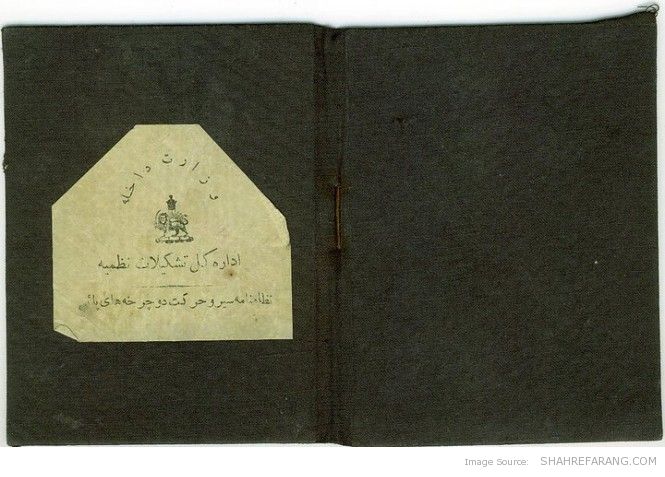 وزارت داخله
اداره کل تشکیلات نظمیه
نظامنامه سیر و حرکت دوچرخه‌های پائی
Image Source: SHAHREFARANG.COM